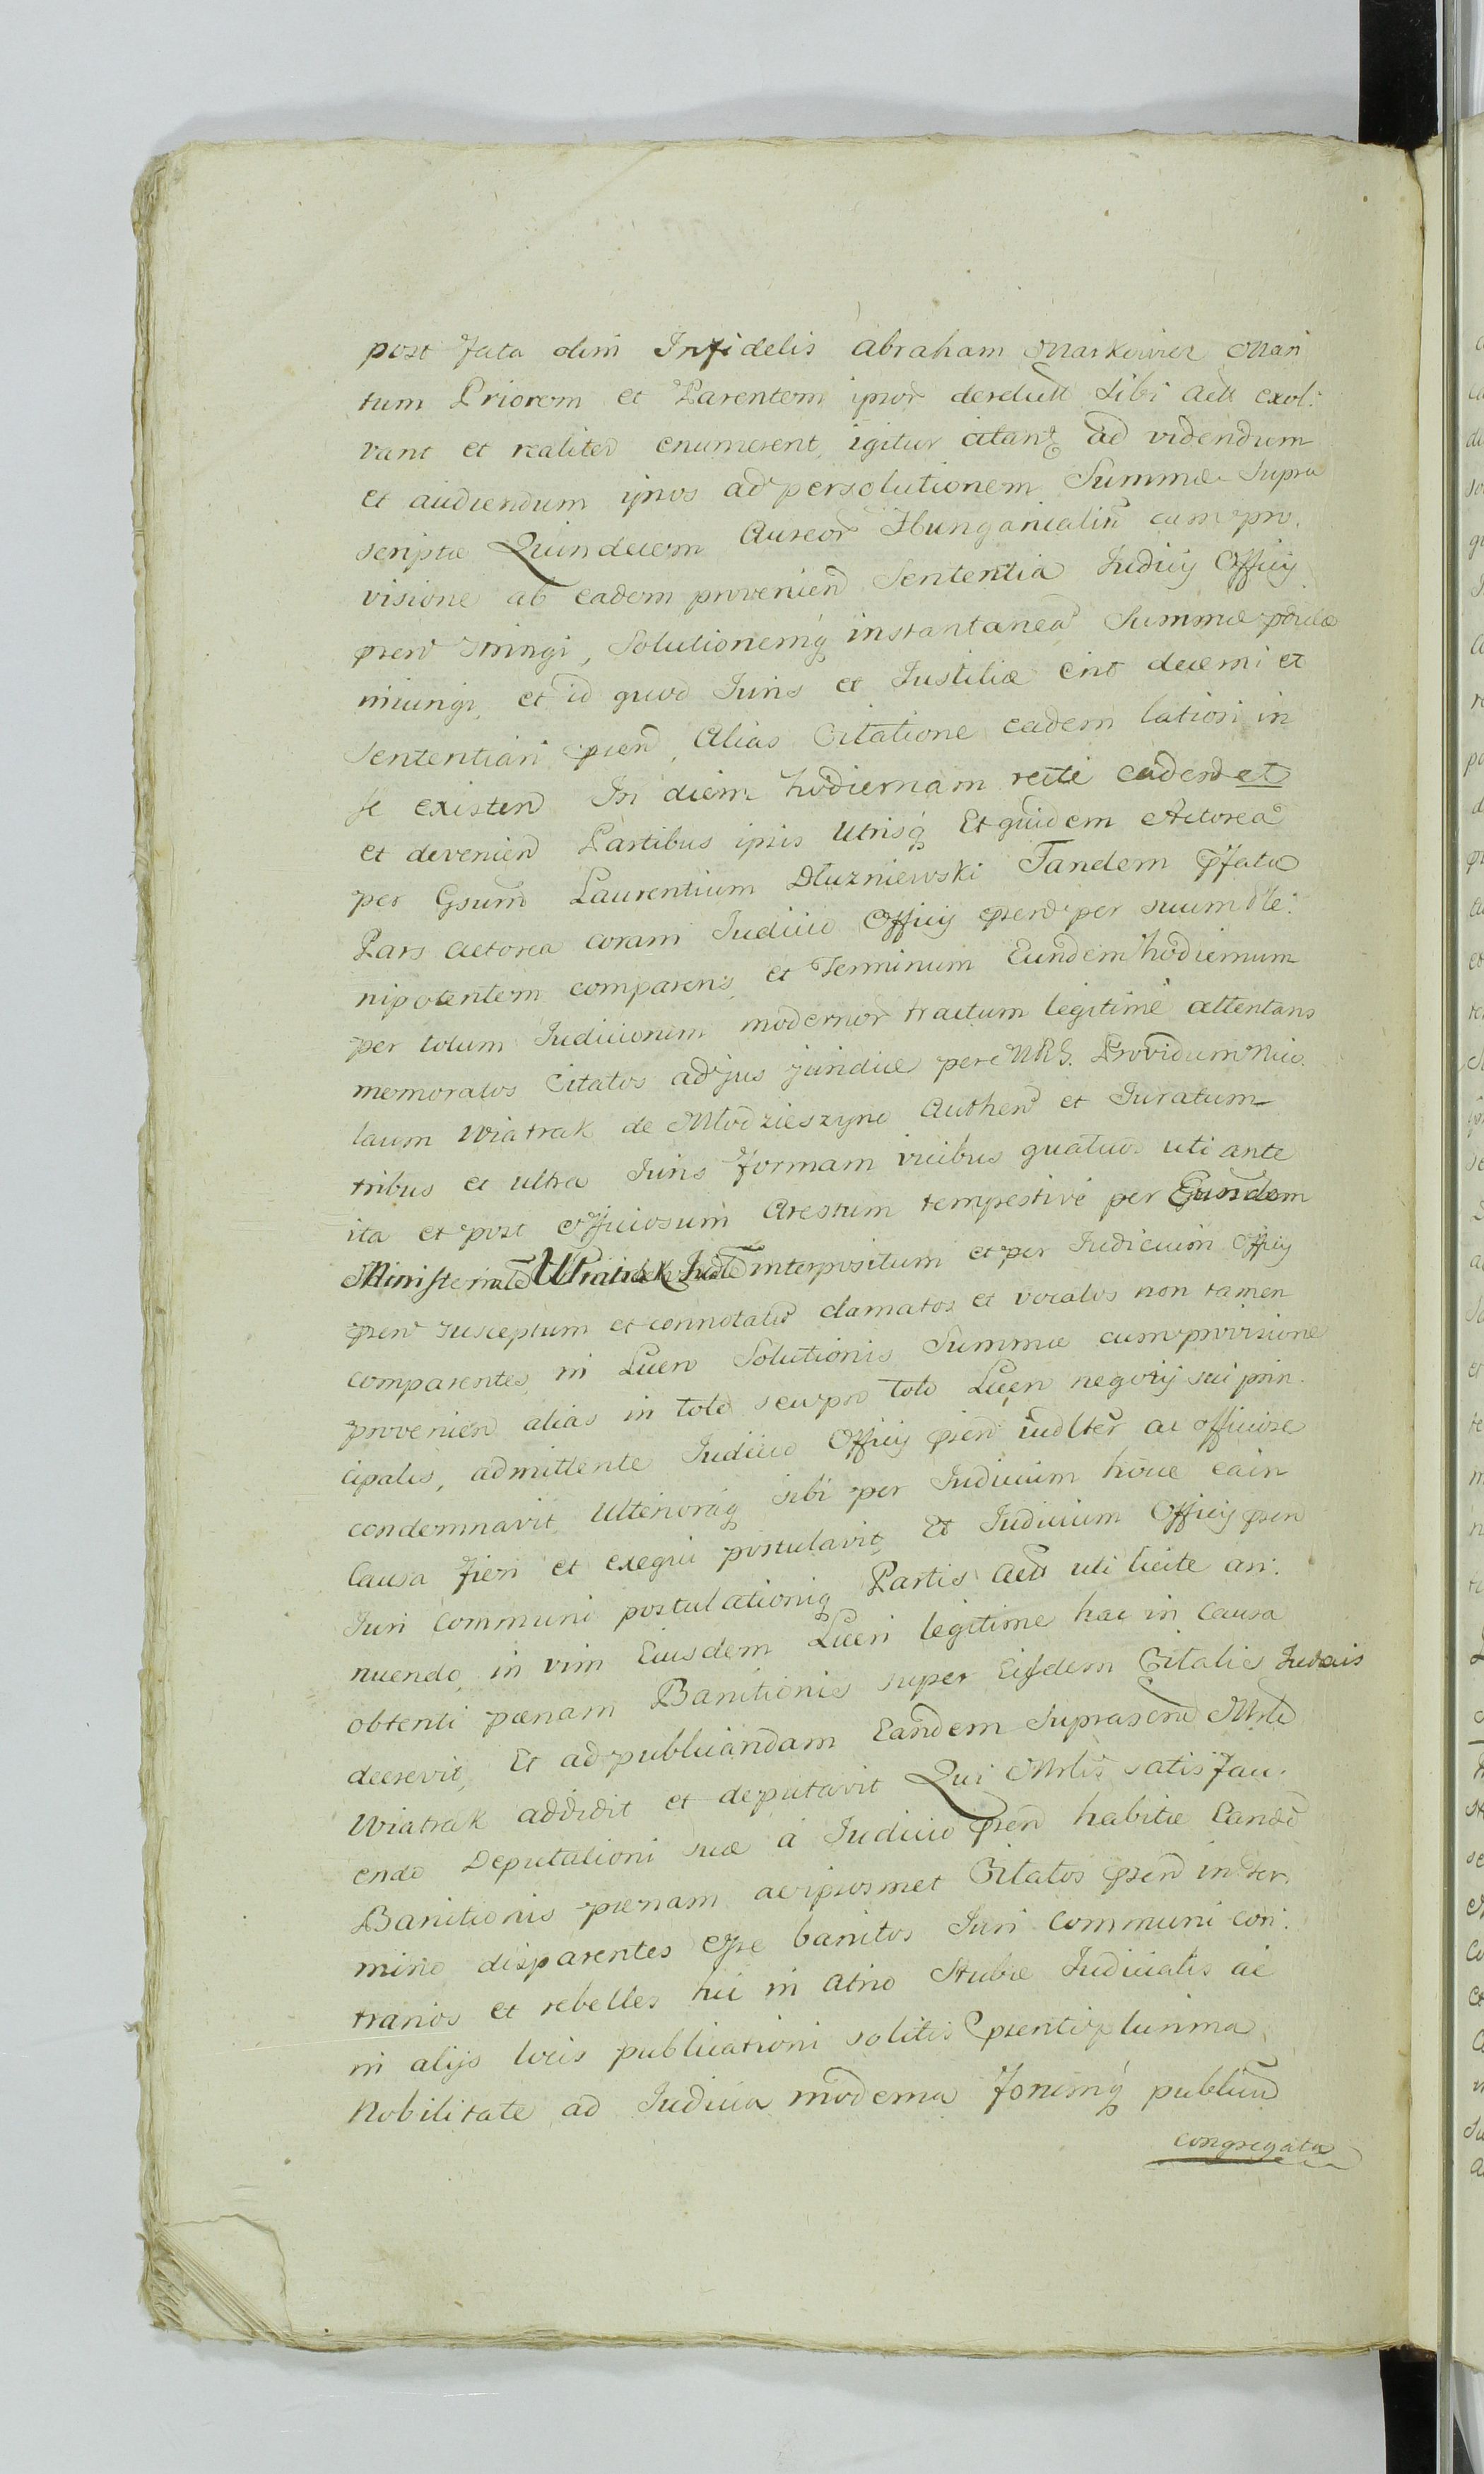 post fata olim Infidelis Abraham Markowicz Mari
tum Priorem et Parentem ipsor derelictt Sibi Actt exol:
vant et realiter enumerent, igitur citantr ad videndum
et audiendum ipsos ad persolutionem Summæ Supra
scriptæ Quindecem Aureor Hungaricaliu cum pro,
visione ab eadem provenien Sententia Judicij Officij
pren stringi, Solutionemq instantanea Summæ
miungi, et id quod Juris et Justitiæ erit decerni et
Sententiari pren, Alias Citatione eadem latiori in
se existen In diem hodiernam recte caden et
et devenien Partibus ipsis Utrisq Et quidem Actorea
per Gsum Laurentium Dłuzniewski Tandem pfata
Pars Actorea coram Judicio Officij pren per suum Ple:
nipotentem comparens, et Terminum Eundem hodiernum
per totum Judiciorum modernor tractum legitime attentans
memoratos Citatos ad jus juridice per MRG. Providum Nico.
laum Wiatrak de Młodzieszyno Authen et Juratum
tribus et ultra Juris formam vicibus quatuor uti ante
ita et post officiosum Arestum tempestive per Eundem
Ministeriale Wiatrak interpositum et per Judicium Officij
pren susceptum et connotatu clamatos et vocatos non tamen
comparentes, in Lucro Solutionis Summæ cum provisione
provenien alias in toto seu pro toto Lucro negotij sui prin.
cipalis, admittente Judicio Officij pren iudlter ac officiose
condemnavit, Ulterioraq sibi per Judicium hocce ea in
Causa fieri et exequi postulavit, Et Judicium Officij pren
Juri Communi postulationiq Partis Actt uti licite an:
nuendo, in vim Eiusdem Lucri legitime hac in Causa
obtenti pœnam Banitionis super Eisdem Citatis Judæis
decrevit, Et ad publicandam Eandem Suprascrit Mrle
Wiatrak addidit et deputavit Qui Mrlis satisfaci.
endo Deputationi suæ a Judicio pren habitæ Eande
Banitionis pœnam ac ipsosmet Citatos pren in Ter.
mino disparentes esse banitos Juri Communi con:
trarios et rebelles hic in Atrio Stubæ Judicialis ac
in alijs locis publicationi solitis prenti plurima
Nobilitate ad Judicia moderna forumq publicu
congregata